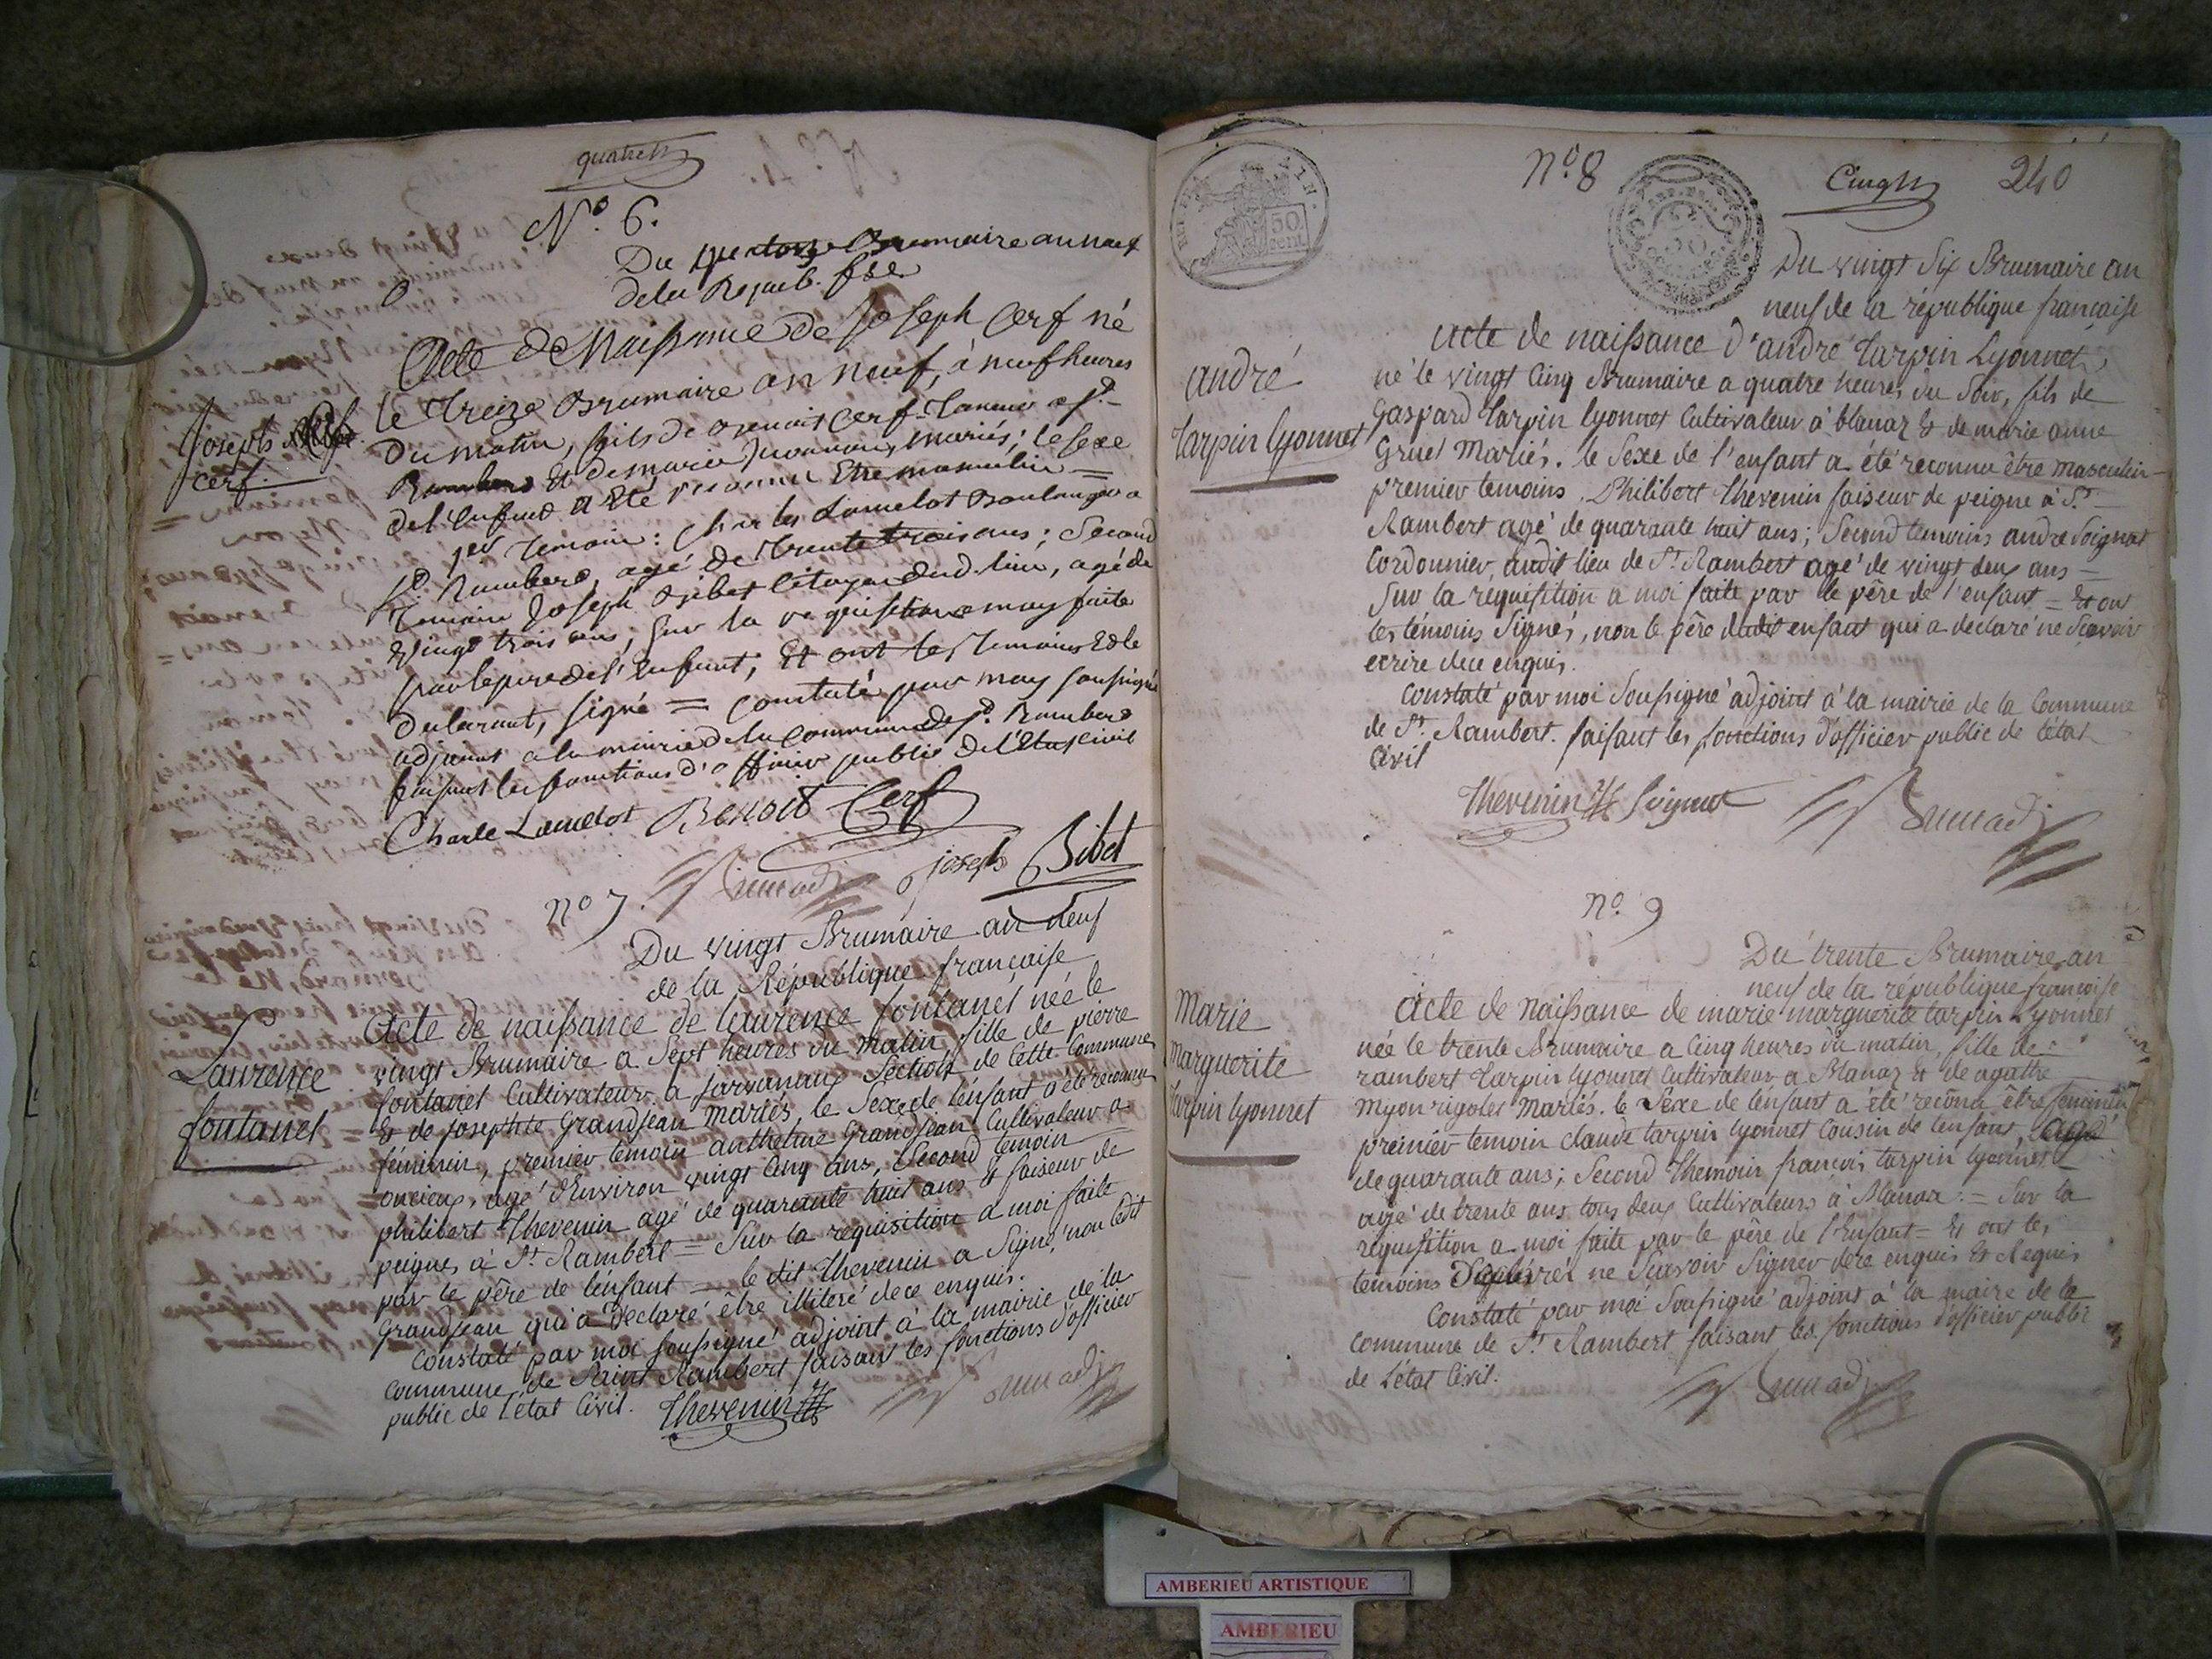 quatre
N.º 6.
Du quatorze Brumaire an neuf
de la Repub. fse
Acte de Naissance de Joseph Cerf né
le treize Brumaire an neuf, à neuf heures
du matin, fils de Benoit Cerf Tanneur a St.
Rambert et de marie, mariés; le sexe
de l'enfant a été reconnu être masculin =
1er temoin: Charles Lamelot Boulanger a
St. Rambert, agé de trente trois ans; Second
temoin Joseph Bibet Citoyen dud. lieu, agé de
vingt trois ans, sur la requisition a moy faite
par le pere de l'enfant; Et ont les temoins et le
declarant, signé = constaté par moy soussigné
adjoint a la mairie de la commune de St. Rambert
faisant les fonctions d'officier public de l'état civil
Joseph
cerf.
Charle Lamelot Benoit Cerf
joseph Bibet
nº 7.
Du vingt Brumaire an neuf
de la République française
Laurence
fontanel
Acte de naissance de laurence fontanel née le
vingt Brumaire a Sept heures du matin fille de pierre
fontanel Cultivateur a Section de Cette Commune
& de josephte Grandjean mariés, le Sexe de l'enfant a été reconnu
féminin, premier temoin anthelme Grandjean Cultivateur a
oncieux, agé d'Environ vingt Cinq ans, Second temoin
philibert Thevenin agé de quarante huit ans & faiseur de
peignes à St. Rambert = Sur la requisition a moi faite
par le père de l'enfant = le dit Thevenin a Signé, non ledit
Grandjean qui a declaré être illiteré de ce enquis.
Constaté par moi soussigné adjoint à la mairie de la
commune de Saint Rambert faisant les fonctions d'officier
public de l'état Civil. Thevenin
Nº. 8
Cinq
240
50
cent
Du vingt Six Brumaire an
neuf de la république française
andré
tarpin lyonnet
acte de naissance d'andré tarpin Lyonnet,
né le vingt Cinq Brumaire a quatre heures du Soir, fils de
Gaspard tarpin lyonnet Cultivateur à blanaz & de marie anne
Gruet Mariés. le Sexe de l'enfant a été reconnu être masculin
premier temoins. Philibert Thevenin faiseur de peigne à St.
Rambert agé de quarante huit ans; Second temoins andre Soignat
Cordonnier, audit lieu de St. Rambert agé de vingt deux ans =
Sur la requisition a moi faite par le père de l'enfant = Et ont
les témoins Signés, non le père dudit enfant qui a declaré ne Scavoir
ecrire de ce enquis.
Constaté par moi Soussigné adjoint à la mairie de la Commune
de St. Rambert. faisant les fonctions d'officier public de l'état
Civil
Thevenin Soignat
nº. 9
Du trente Brumaire an
neuf de la république française
Marie
Marguerite
tarpin lyonnet
acte de Naissance de marie marguerite tarpin Lyonnet
née le trente Brumaire a Cinq heures du matin, fille de
rambert tarpin lyonnet Cultivateur a Blanaz & de agathe
Myon rigolet Mariés. le Sexe de l'enfant a été reconu être feminin
premier temoin claude tarpin lyonnet Cousin de l'enfant, agé
de quarante ans; Second themoin françois tarpin lyonnet
agé de trente ans tous deux Cultivateurs à Blanaz = Sur la
requisition a moi faite par le père de l'Enfant = Et ont les
temoins ne Scavoir Signer de ce enquis Et Requis
Constaté par moi Soussigné adjoint à la maire de la
commune de St. Rambert faisant les fonctions d'officier public
de L'état Civil.
AMBERIEU ARTISTIQUE
AMBERIEU